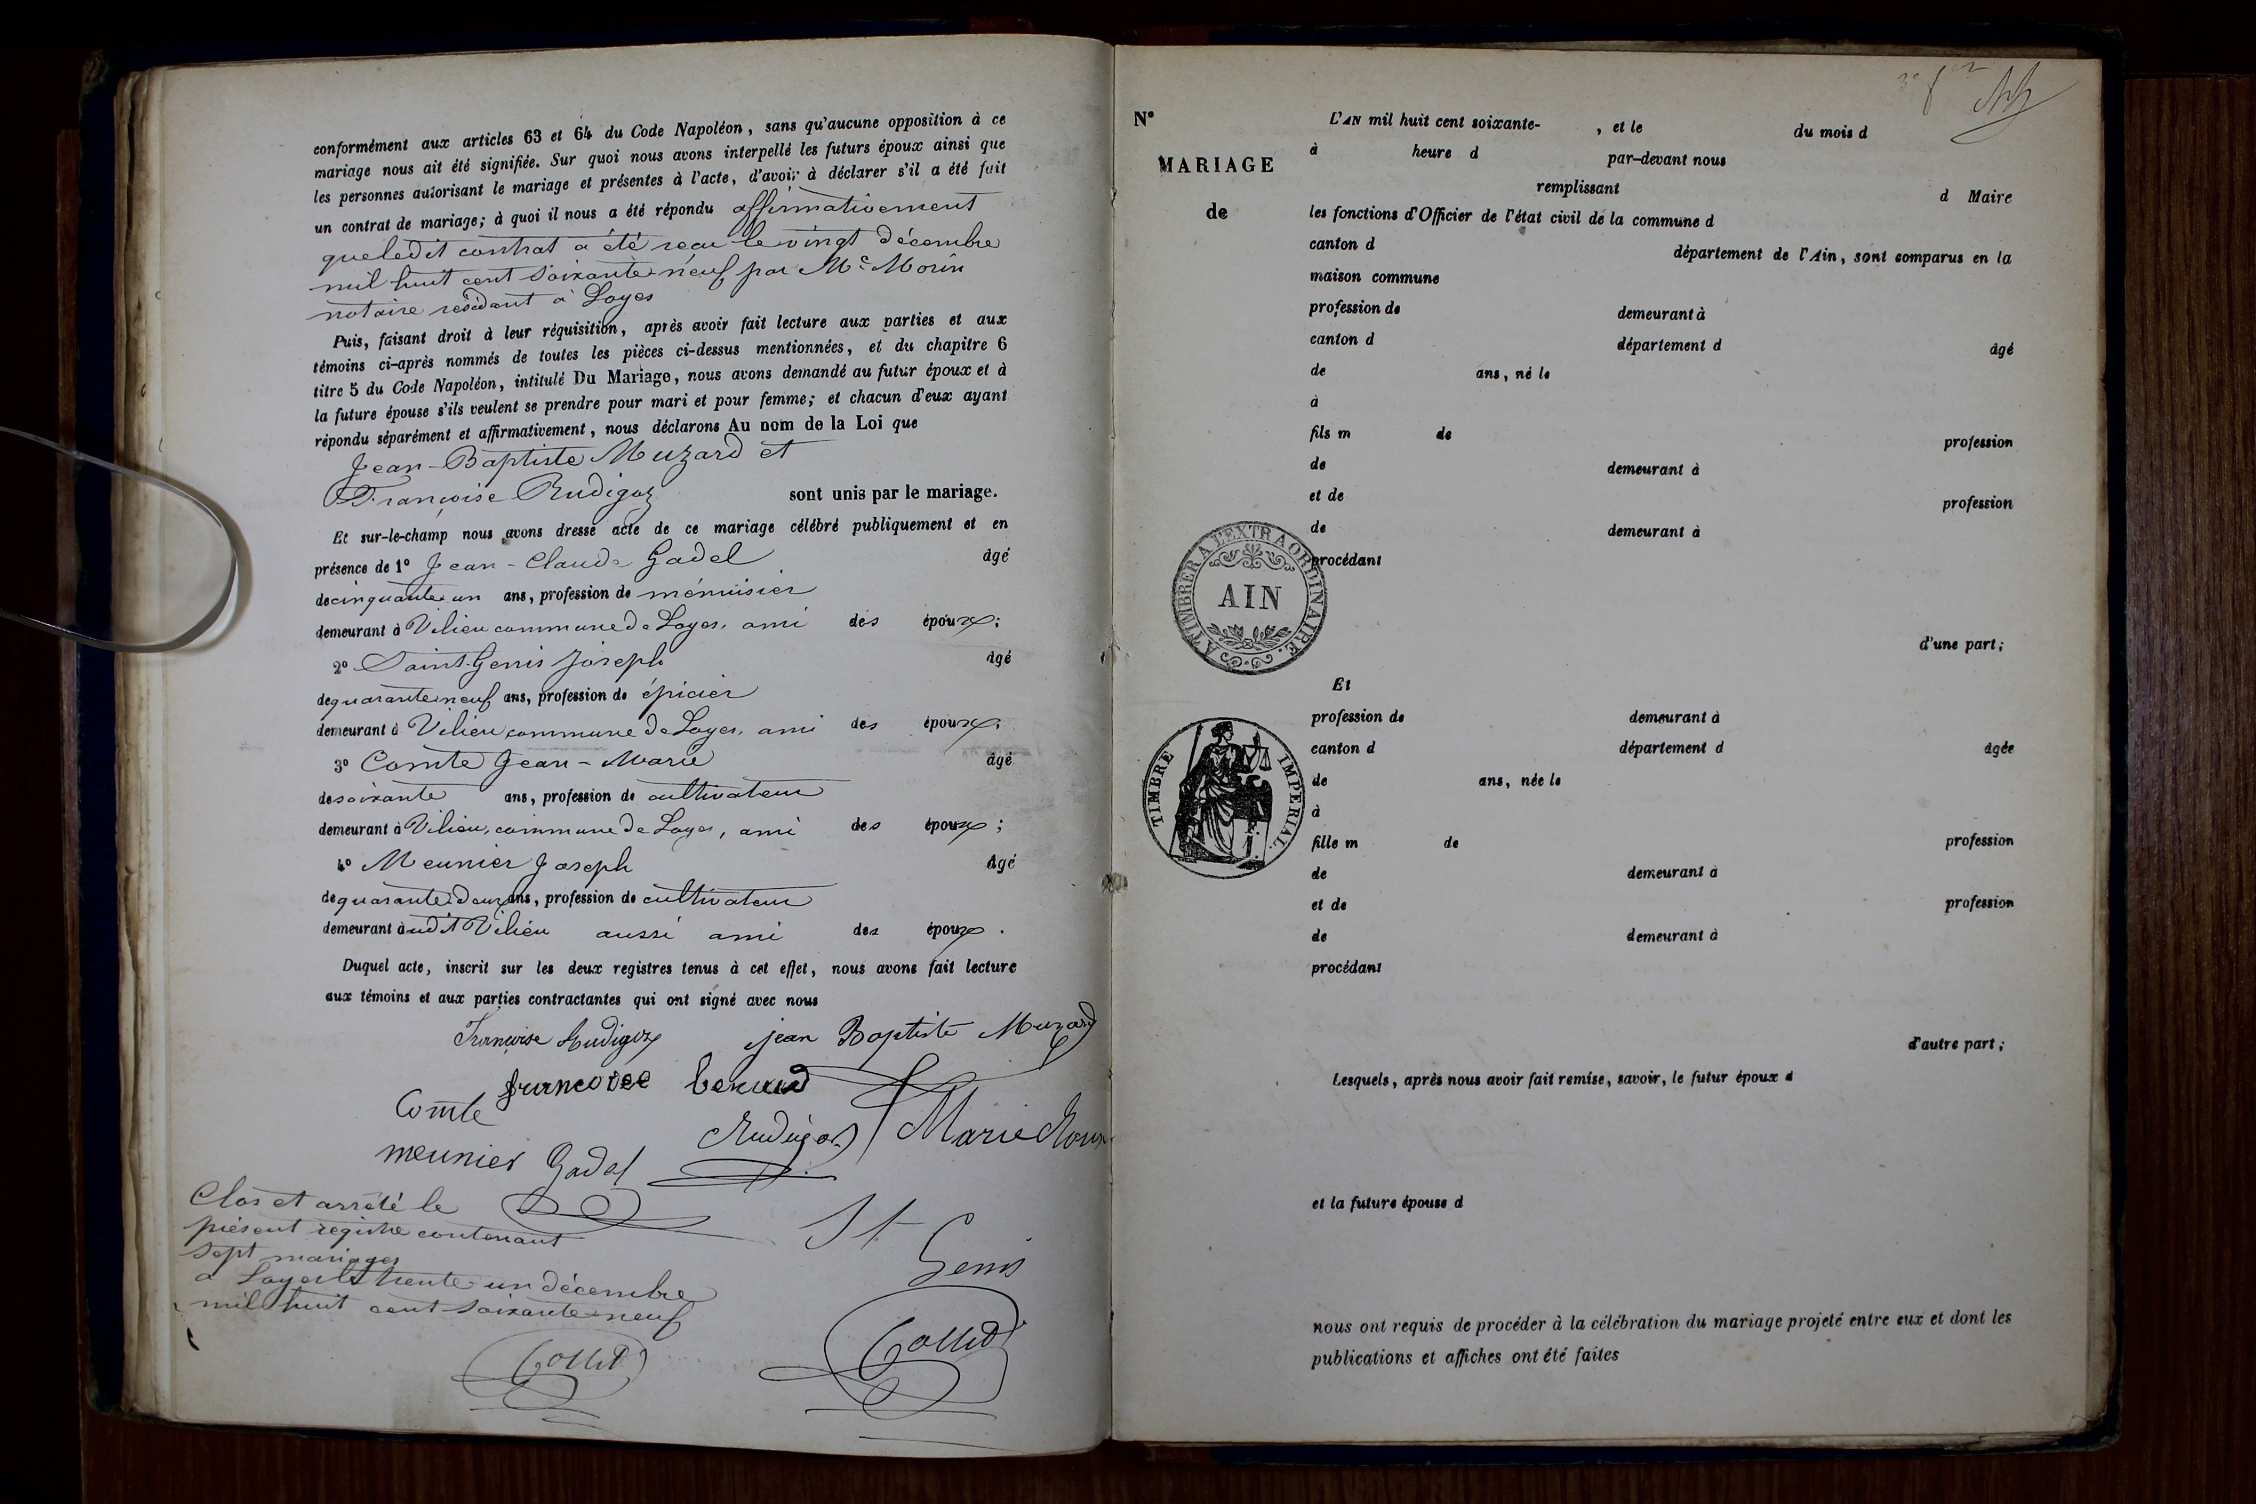 conformément aux articles 63 et 64 du Code Napoléon, sans qu'aucune opposition à ce
mariage nous ait été signifiée. Sur quoi nous avons interpellé les futurs époux ainsi que
les personnes autorisant le mariage et présentes à l'acte, d'avoir à déclarer s'il a été fait
un contrat de mariage; à quoi il nous a été répondu affirmativement
que ledit contrat a été reçu le vingt décembre
mil huit cent soixante neuf par Mᵉ Morin
notaire résidant à Loyes
Puis, faisant droit à leur réquisition, après avoir fait lecture aux parties et aux
témoins ci-après nommés de toutes les pièces ci-dessus mentionnées, et du chapitre 6
titre 5 du Code Napoléon, intitulé Du Mariage, nous avons demandé au futur époux et à
la future épouse s'ils veulent se prendre pour mari et pour femme; et chacun d'eux ayant
répondu séparément et affirmativement, nous déclarons Au nom de la Loi que
Jean-Baptiste Muzard et
Françoise Rudigoz sont unis par le mariage.
Et sur-le-champ nous avons dressé acte de ce mariage célébré publiquement et en
présence de 1º Jean-Claude Gadel âgé
de cinquante un ans, profession de ménuisier
demeurant à Vilieu commune de Loyes, ami des époux;
2º Saint-Genis Joseph âgé
de quarante neuf ans, profession de épicier
demeurant à Vilieu commune de Loyes, ami des époux;
3º Comte Jean-Marie âgé
de soixante ans, profession de cultivateur
demeurant à Vilieu, commune de Loyes, ami des époux;
4º Meunier Joseph âgé
de quarante deux ans, profession de cultivateur
demeurant à udit Vilieu aussi ami des époux.
Duquel acte, inscrit sur les deux registres tenus à cet effet, nous avons fait lecture
aux témoins et aux parties contractantes qui ont signé avec nous
Françoise Rudigoz jean Baptiste Muzard
Comte
Rudigoz Marie
meunier Gadel
St Genis
Clos et arrêté le
présent registre contenant
sept mariages
a Loyes le trente un décembre
mil huit cent soixante neuf
Nº
MARIAGE
de
L'AN mil huit cent soixante- , et le du mois d
à heure d par-devant nous
remplissant d Maire
les fonctions d'Officier de l'état civil de la commune d
canton d département de l'Ain, sont comparus en la
maison commune
profession de demeurant à
canton d département d âgé
de ans, né le
à
fils m de profession
de demeurant à
et de profession
de demeurant à
procédant
A TIMBRER A L'EXTRAORDINAIRE.
AIN
d'une part;
Et
profession de demeurant à
canton d département d âgée
TIMBRE IMPERIAL.
de ans, née le
à
fille m de profession
de demeurant à
et de profession
de demeurant à
procédant
d'autre part;
Lesquels, après nous avoir fait remise, savoir, le futur époux d
et la future épouse d
nous ont requis de procéder à la célébration du mariage projeté entre eux et dont les
publications et affiches ont été faites